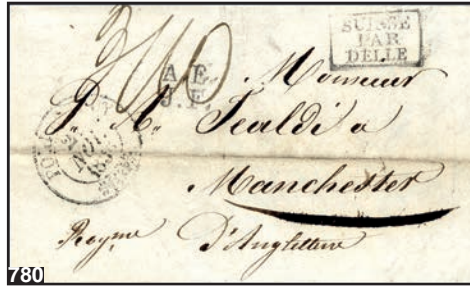 SUISSE
PAR
DELLE
A.E.
J.F.
Monsieur
P. A. Tealdi a
Manchester
Royme D'Angleterre
780